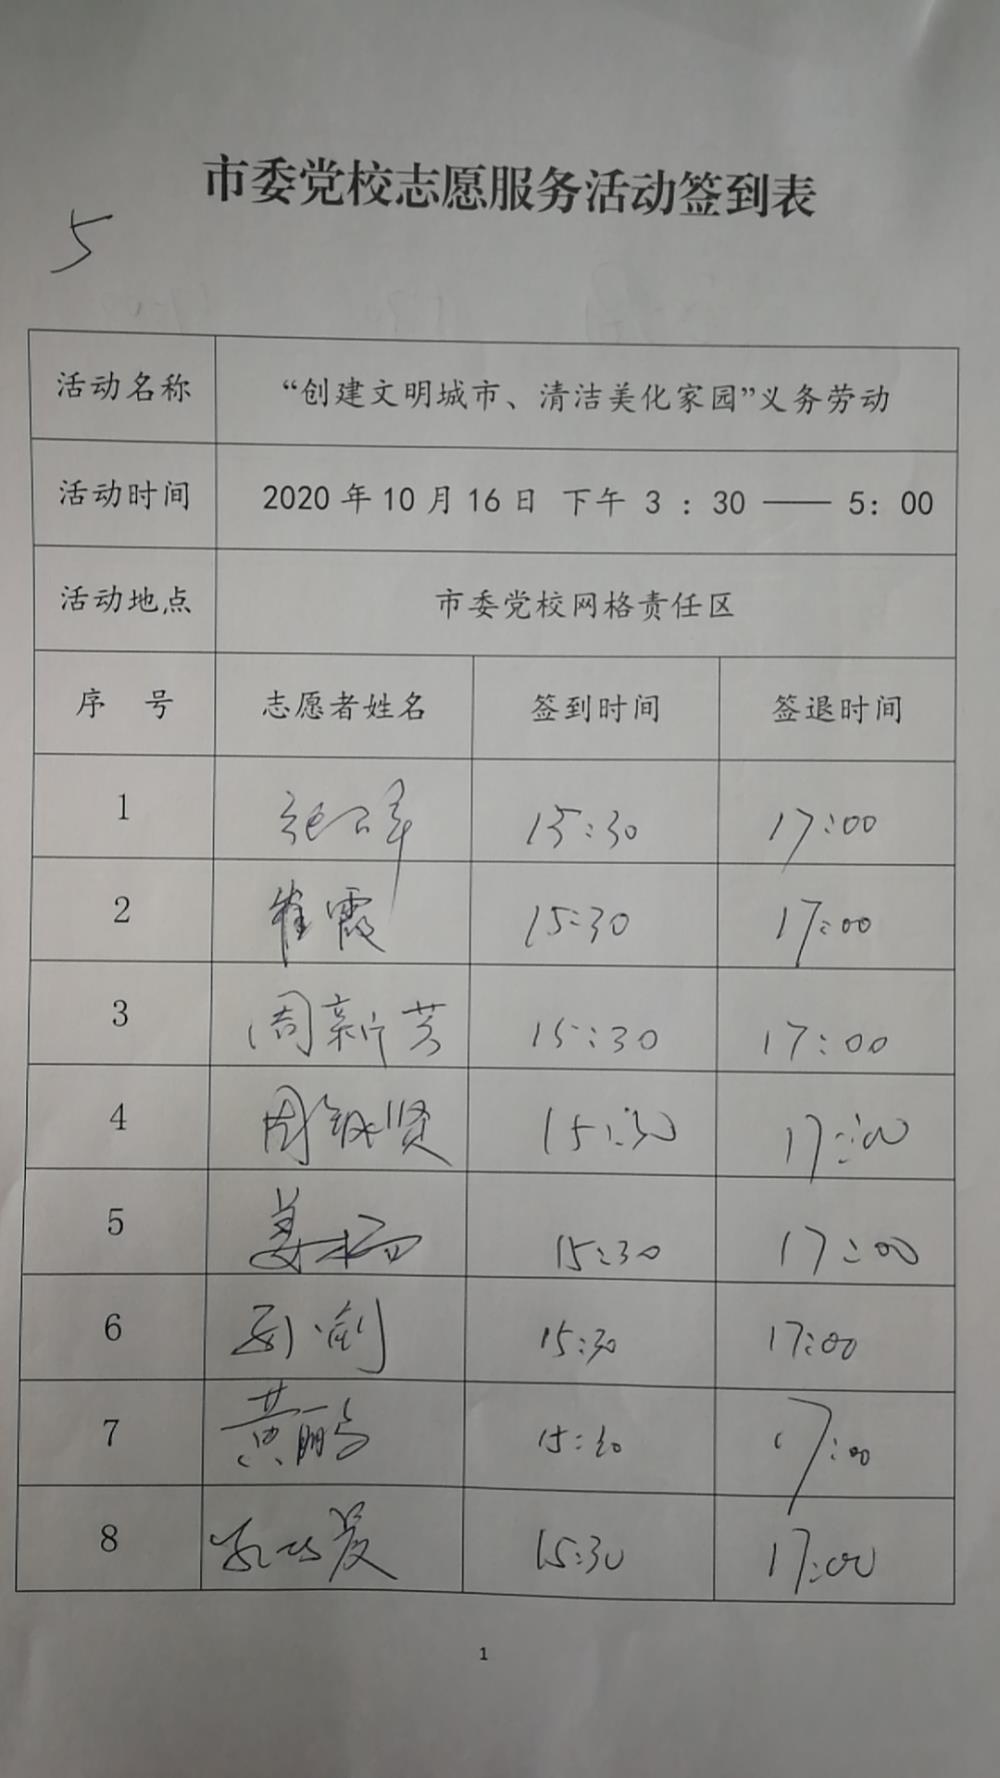 市委党校志愿服务活动签到表
5
活动名称 “创建文明城市、清洁美化家园”义务劳动
活动时间 2020 年 10 月 16 日 下午 3 : 30 —— 5: 00
活动地点 市委党校网格责任区
序 号 志愿者姓名 签到时间 签退时间
1 15:30 17:00
2 崔霞 15:30 17:00
3 周新芳 15:30 17:00
4 周敏贤 15:30 17:00
5 姜杨 15:30 17:00
6 15:30 17:00
7 黄鹂 15:30 17:00
8 15:30 17:00
1